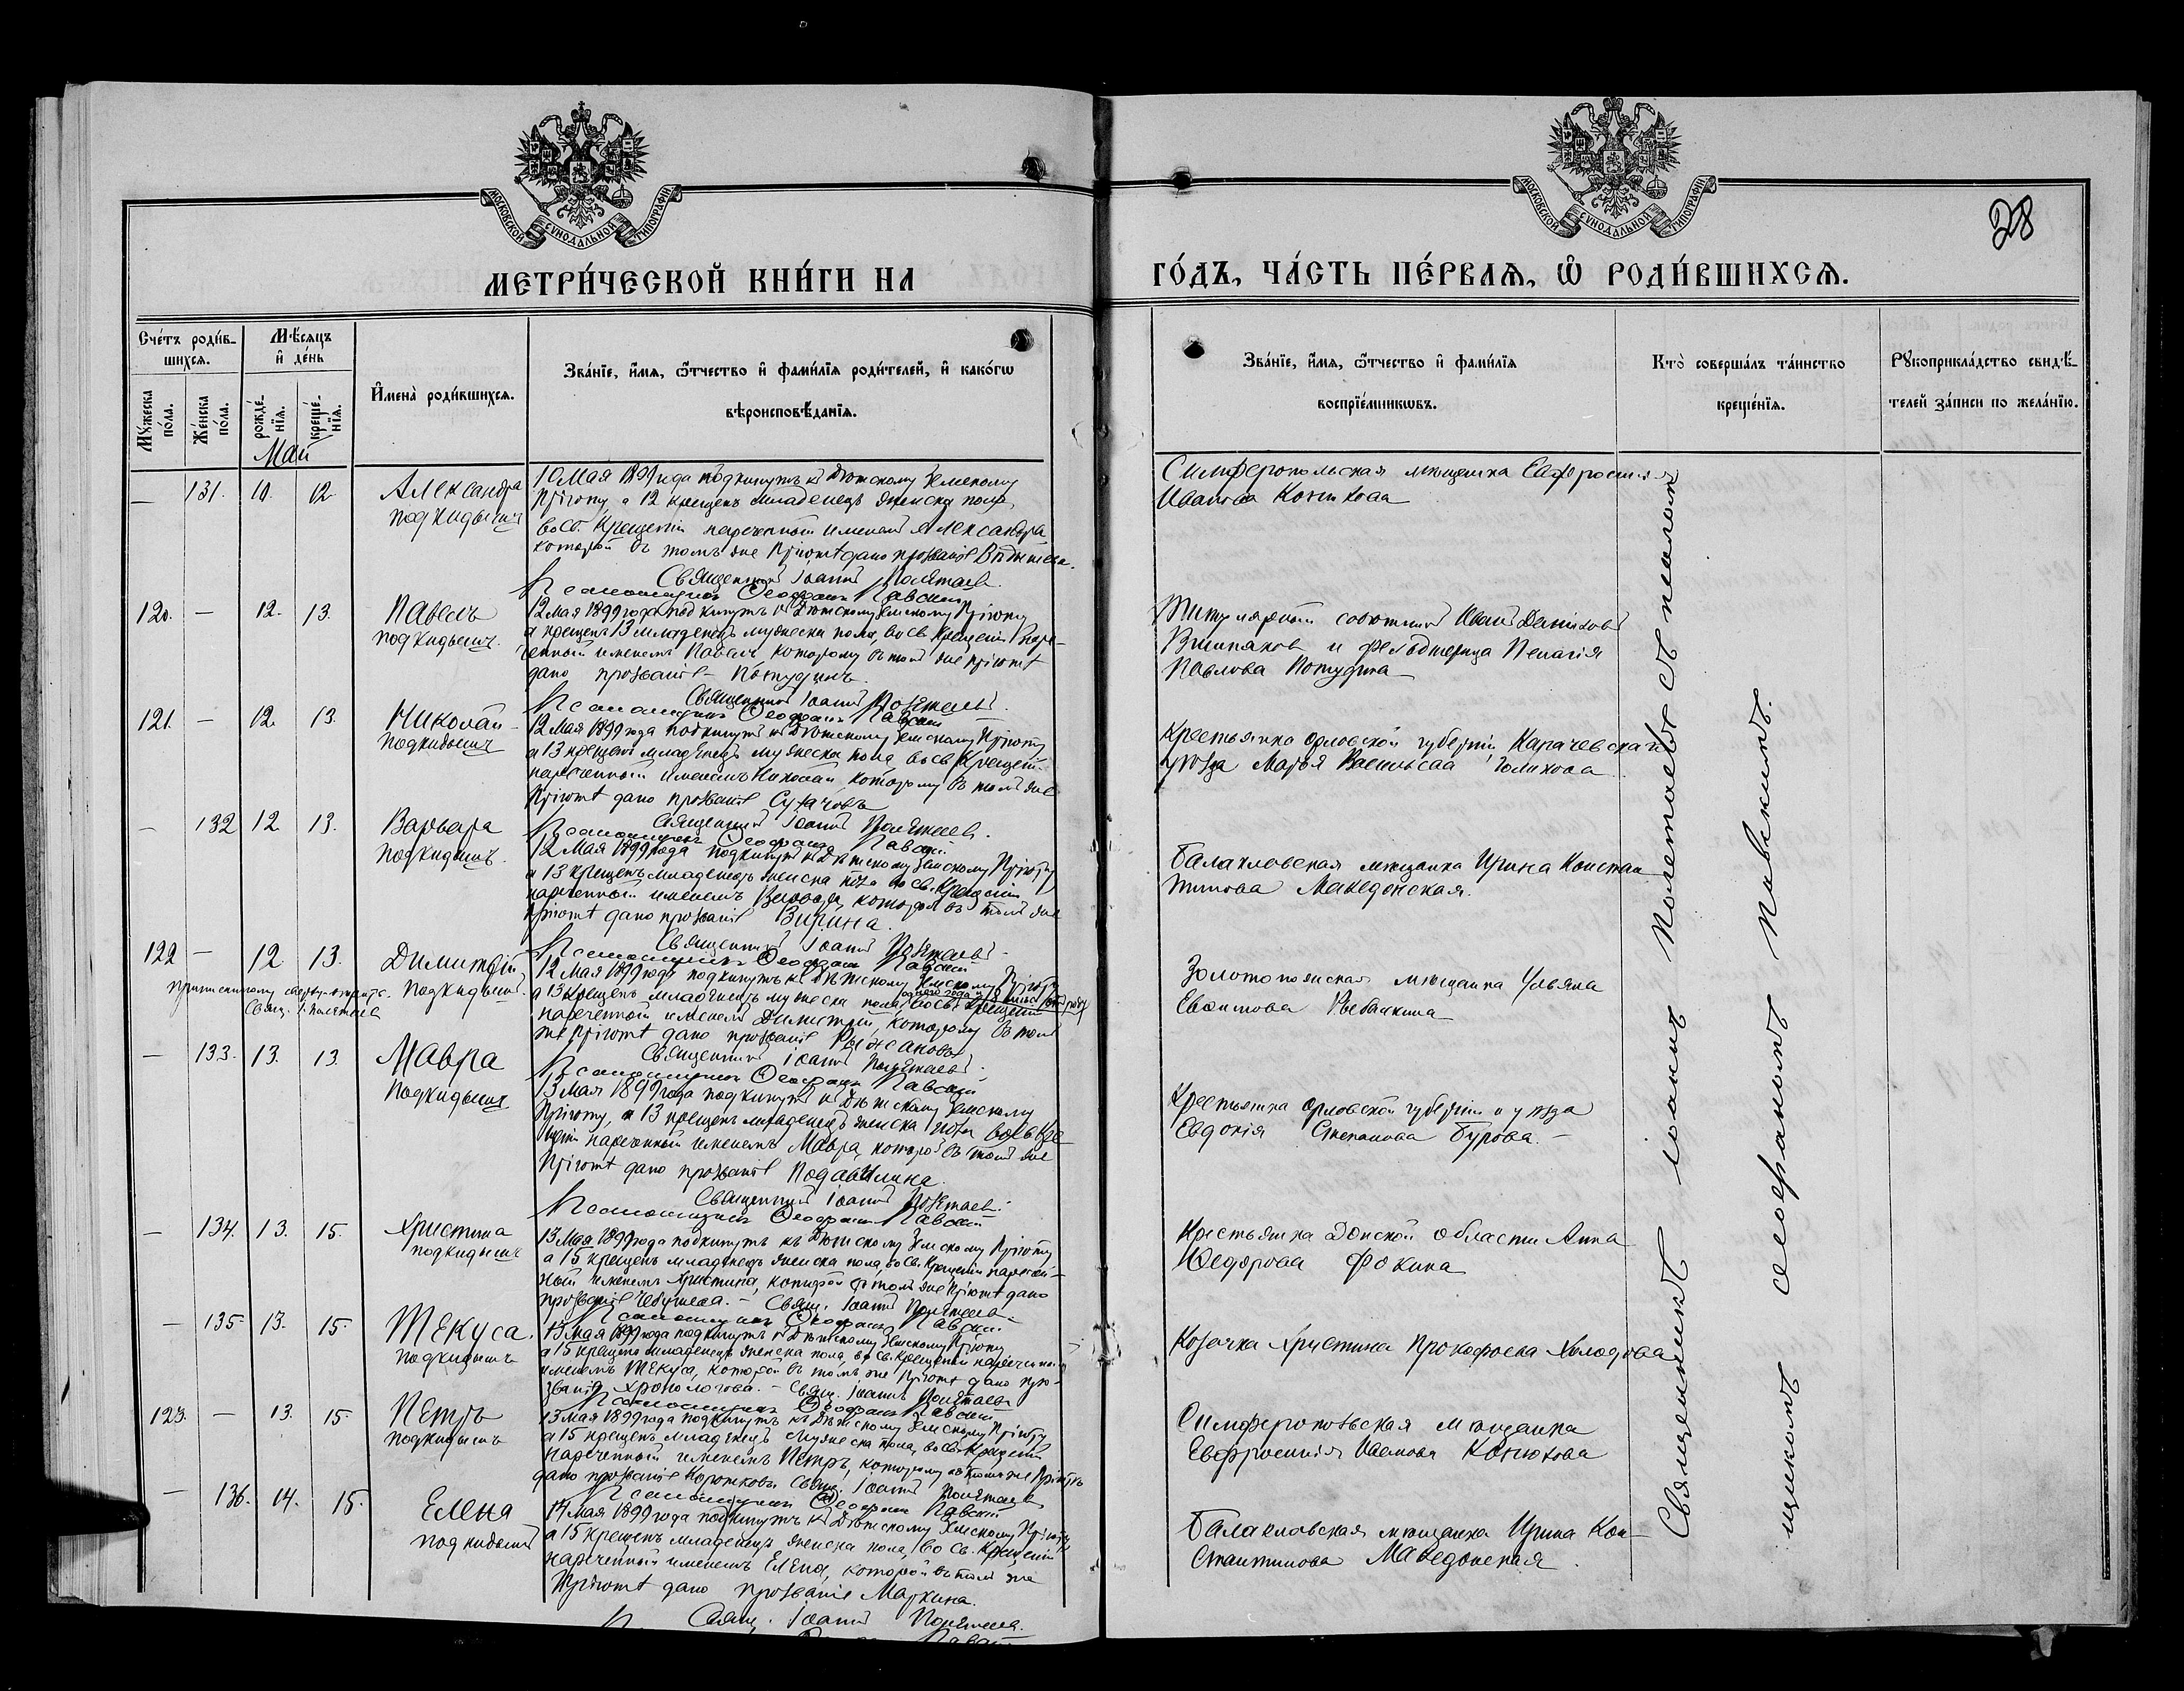 МОСКОВСКОЙ СѴНОДАЛЬНОЙ ТИПОГРАФІИ
МОСКОВСКОЙ СѴНОДАЛЬНОЙ ТИПОГРАФІИ
28
МЕТРИ́ЧЕСКОЙ КНИ́ГИ НА
ГО́ДЪ, ЧА́СТЬ ПЕ́РВАЯ, Ѡ҆ РОДИ́ВШИХСЯ.
Сче́тъ роди́в-
шихся.
Мꙋ́жеска по́ла.
Же́нска по́ла.
Мѣ́сяцъ и҆ де́нь
рожде́-нїѧ.
креще́-нїѧ.
Май
И҆мена̀ роди́вшихся.
Зва́нїе, и҆́мя, ѻ҆́тчество и҆ фами́лїя роди́телей, и҆ како́гѡ
вѣроисповѣ́данїя.
Зва́нїе, и҆́мя, ѻ҆́тчество и҆ фами́лїя
воспрїе́мникѡвъ.
Кто̀ соверша́лъ та́инство
креще́нїя.
Рꙋкоприкла́дство свидѣ́-
телей за́писи по жела́нїю.
— 131. 10. 12. Александра
подкидышъ
10 Мая 1899 года подкинутъ къ Дѣтскому Земскому
Пріюту, а 12 крещенъ младенецъ женска пола,
во Св. Крещеніи нареченный именемъ Александра
которой въ томъ же Пріютѣ дано прозваніе
Священникъ Іоаннъ Полетаевъ.
Псаломщикъ Ѳеофанъ Павскій
Симферопольская мѣщанка Евфросинія
Иванова Конюкова
120. — 12. 13. Павелъ
подкидышъ.
12 Мая 1899 года подкинутъ къ Дѣтскому Земскому Пріюту
а крещенъ 13 младенецъ мужеска пола, во св. Крещеніи наре-
ченный именемъ Павелъ которому въ томъ же Пріютѣ
дано прозваніе – Потудинъ.
Священникъ Іоаннъ Полетаевъ.
Псаломщикъ Ѳеофанъ Павскій
Титулярный совѣтникъ Иванъ Даниловъ
и фельдшерица Пелагія
Павлова Потудина
121. — 12. 13. Николай
подкидышъ
12 Мая 1899 года подкинутъ къ Дѣтскому Земскому Пріюту
а 13 крещенъ младенецъ мужеска пола во св. Крещеніи
нареченный именемъ Николай, которому въ томъ же
Пріютѣ дано прозваніе Сухачовъ
Священникъ Іоаннъ Полетаевъ.
Псаломщикъ Ѳеофанъ Павскій
Крестьянка Орловской губерніи, Карачевскаго
уѣзда Марья Васильева Голикова
— 132 12. 13. Варвара
подкидышъ.
12 Мая 1899 года подкинутъ къ Дѣтскому Земскому Пріюту
а 13 крещенъ младенецъ женска пола во св. Крещеніи
нареченный именемъ Варвара, которой въ томъ же
пріютѣ дано прозваніе Зирина.
Священникъ Іоаннъ Полетаевъ.
Псаломщикъ Ѳеофанъ Павскій
Балаклавская мѣщанка Ирина Констан
тинова Македонская.
122 — 12 13. Димитрій
подкидышъ.
Свящ. І. Полетаевъ
12 Мая 1899 года подкинутъ къ Дѣтскому Земскому Пріюту
а 13 крещенъ младенецъ мужеска пола, во св. Крещеніи
нареченный именемъ Димитрій, которому въ томъ
же Пріютѣ дано прозваніе
Священникъ Іоаннъ Полетаевъ.
Псаломщикъ Ѳеофанъ Павскій
мѣщанка Ульяна
— 133. 13. 13. Мавра
подкидышъ
13 Мая 1899 года подкинутъ къ Дѣтскому Земскому
Пріюту, а 13 крещенъ младенецъ женска пола во св. Кре
щеніи нареченный именемъ Мавра, которой въ томъ же
Пріютѣ дано прозваніе
Священникъ Іоаннъ Полетаевъ.
Псаломщикъ Ѳеофанъ Павскій
Крестьянка Орловской губерніи и уѣзда
Евдокія Степанова Бурова. –
— 134. 13. 15. Христина
подкидышъ
13 Мая 1899 года подкинутъ къ Дѣтскому Земскому Пріюту
а 15 крещенъ младенецъ женска пола, во Св. Крещеніи наречен-
ный именемъ Христина, которой въ томъ же Пріютѣ дано
прозваніе – Свящ. Іоаннъ Полетаевъ
Псаломщикъ Ѳеофанъ Павскій
Крестьянка Донской области Анна
Ѳедорова Фокина
— 135. 13. 15. Текуса.
подкидышъ
13 Мая 1899 года подкинутъ къ Дѣтскому Земскому Пріюту
а 15 крещенъ младенецъ женска пола, во Св. Крещеніи нареченный
именемъ Текуса, которой въ томъ же Пріютѣ дано про-
званіе Хронологова. – Свящ. Іоаннъ Полетаевъ
Псаломщикъ Ѳеофанъ Павскій
Козачка Христина Прокофьева Холодова
123. — 13. 15. Петръ
подкидышъ
13 Мая 1899 года подкинутъ къ Дѣтскому Земскому Пріюту
а 15 крещенъ младенецъ мужеска пола, во св. Крещеніи
нареченный именемъ Петръ, которому въ томъ же Пріютѣ
дано прозваніе Коротковъ Свящ. Іоаннъ Полетаевъ
Псаломщикъ Ѳеофанъ Павскій
Симферопольская мѣщанка
Евфросинія Иванова Конюкова
— 136. 14. 15. Елена
подкидышъ
14 Мая 1899 года подкинутъ къ Дѣтскому Земскому Пріюту
а 15 крещенъ младенецъ женска пола, во Св. Крещеніи
нареченный именемъ Елена, которой въ томъ же
Пріютѣ дано прозваніе Маркина.
Свящ. Іоаннъ Полетаевъ.
Балаклавская мѣщанка Ирина Кон-
стантинова Македонская.
Священникъ Іоаннъ Полетаевъ съ псалом
щикомъ Ѳеофаномъ Павскимъ.